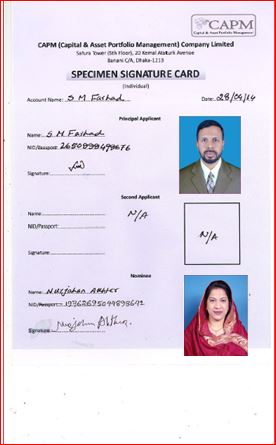 CAPM
Capital & Asset Portfolio Management
CAPM (Capital & Asset Portfolio Management) Company Limited
Safura Tower (5th Floor), 20 Kemal Ataturk Avenue
Banani C/A, Dhaka-1213
SPECIMEN SIGNATURE CARD
(Individual)
Account Name: S M Farhad Date: 28/04/14
Principal Applicant
Name: S M Farhad
NID/Passport:
Signature:
Second Applicant
Name: N/A
NID/Passport:
Signature: N/A
Nominee
Name: Nurjahan Akhter
NID/Passport:
Signature: